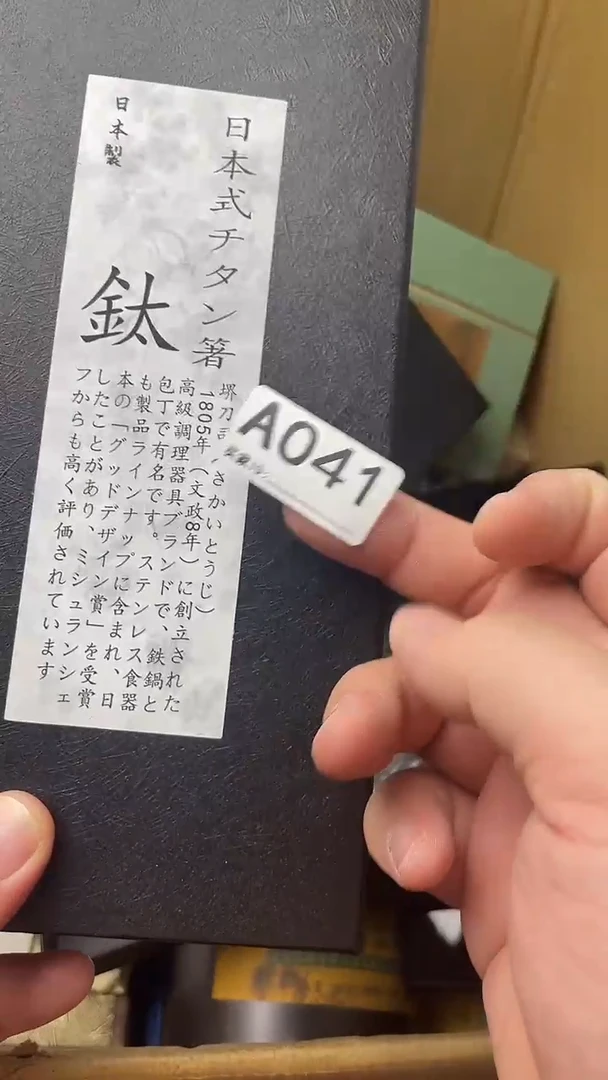 日本式チタン箸
日本製
鈦
堺刀司（さかいとうじ）
1805年（文政8年）に創立された
高級調理器具ブランドで、鉄鍋と
包丁で有名です。ステンレス食器
も製品ラインナップに含まれ、日
本の「グッドデザイン賞」を受賞
したことがあり、ミシュランシェ
フからも高く評価されています
A041